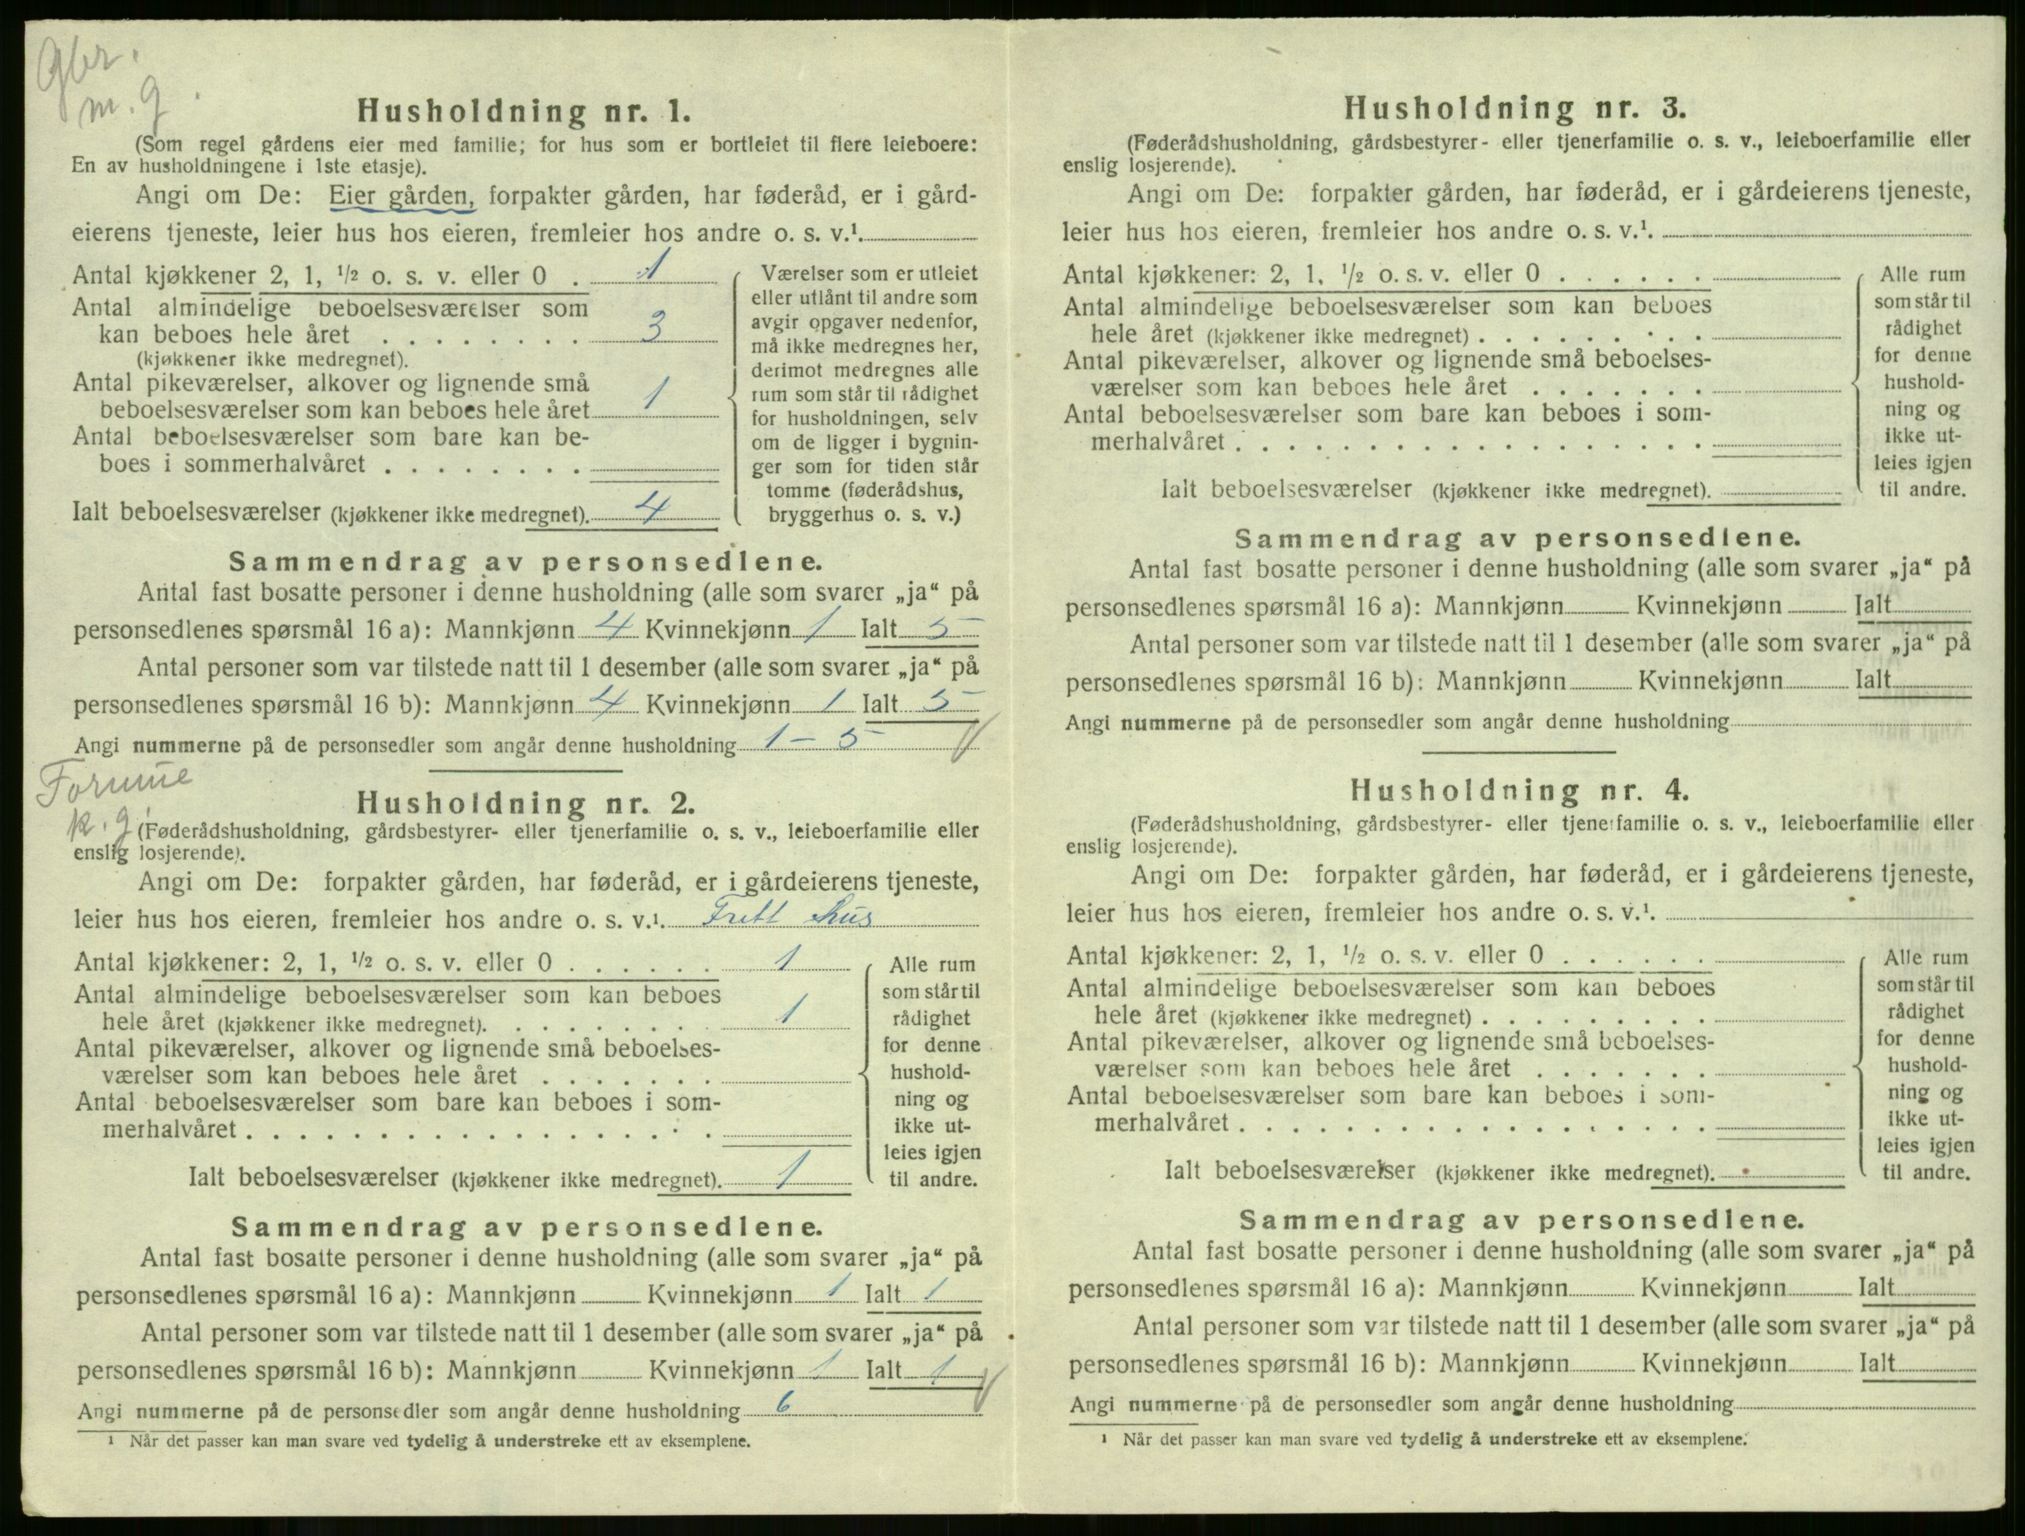 Gbr.
m. g.
Husholdning nr. 1.
(Som regel gårdens eier med familie; for hus som er bortleiet til flere leieboere:
En av husholdningene i 1ste etasje).
Angi om De: Eier gården, forpakter gården, har føderåd, er i gård-
eierens tjeneste, leier hus hos eieren, fremleier hos andre o. s. v.¹.
Antal kjøkkener 2, 1, ½ o. s. v. eller 0 . 1
Antal almindelige beboelsesværelser som
kan beboes hele året . . . . . . . . 3
(kjøkkener ikke medregnet).
Antal pikeværelser, alkover og lignende små
beboelsesværelser som kan beboes hele året 1
Antal beboelsesværelser som bare kan be-
boes i sommerhalvåret . . . . . . . .
Ialt beboelsesværelser (kjøkkener ikke medregnet). 4
Værelser som er utleiet
eller utlånt til andre som
avgir opgaver nedenfor,
må ikke medregnes her,
derimot medregnes alle
rum som står til rådighet
for husholdningen, selv
om de ligger i bygnin-
ger som for tiden står
tomme (føderådshus,
bryggerhus o. s. v.)
Sammendrag av personsedlene.
Antal fast bosatte personer i denne husholdning (alle som svarer „ja“ på
personsedlenes spørsmål 16 a): Mannkjønn 4 Kvinnekjønn 1 Ialt 5
Antal personer som var tilstede natt til 1 desember (alle som svarer „ja“ på
personsedlenes spørsmål 16 b): Mannkjønn 4 Kvinnekjønn 1 Ialt 5
Angi nummerne på de personsedler som angår denne husholdning 1 - 5
k. g.
Husholdning nr. 2.
(Føderådshusholdning, gårdsbestyrer- eller tjenerfamilie o. s. v., leieboerfamilie eller
enslig losjerende).
Angi om De: forpakter gården, har føderåd, er i gårdeierens tjeneste,
leier hus hos eieren, fremleier hos andre o. s. v.¹. Fritt hus
Antal kjøkkener: 2, 1, ½ o. s. v. eller 0 . . . . . . 1
Antal almindelige beboelsesværelser som kan beboes
hele året (kjøkkener ikke medregnet). . . . . . . . . 1
Antal pikeværelser, alkover og lignende små beboelses-
værelser som kan beboes hele året . . . . . . .
Antal beboelsesværelser som bare kan beboes i som-
merhalvåret . . . . . . . . . . . . . . . . . .
Ialt beboelsesværelser (kjøkkener ikke medregnet). 1
Alle rum
som står til
rådighet
for denne
hushold-
ning og
ikke ut-
leies igjen
til andre.
Sammendrag av personsedlene.
Antal fast bosatte personer i denne husholdning (alle som svarer „ja“ på
personsedlenes spørsmål 16 a): Mannkjønn Kvinnekjønn 1 Ialt 1
Antal personer som var tilstede natt til 1 desember (alle som svarer „ja“ på
personsedlenes spørsmål 16 b): Mannkjønn Kvinnekjønn 1 Ialt 1
Angi nummerne på de personsedler som angår denne husholdning 6
¹ Når det passer kan man svare ved tydelig å understreke ett av eksemplene.
Husholdning nr. 3.
(Føderådshusholdning, gårdsbestyrer- eller tjenerfamilie o. s. v., leieboerfamilie eller
enslig losjerende).
Angi om De: forpakter gården, har føderåd, er i gårdeierens tjeneste,
leier hus hos eieren, fremleier hos andre o. s. v.¹.
Antal kjøkkener: 2, 1, ½ o. s. v. eller 0 . . . . . .
Antal almindelige beboelsesværelser som kan beboes
hele året (kjøkkener ikke medregnet) . . . . . . . . .
Antal pikeværelser, alkover og lignende små beboelses-
værelser som kan beboes hele året . . . . . . .
Antal beboelsesværelser som bare kan beboes i som-
merhalvåret . . . . . . . . . . . . . . . . . .
Ialt beboelsesværelser (kjøkkener ikke medregnet).
Alle rum
som står til
rådighet
for denne
hushold-
ning og
ikke ut-
leies igjen
til andre.
Sammendrag av personsedlene.
Antal fast bosatte personer i denne husholdning (alle som svarer „ja“ på
personsedlenes spørsmål 16 a): Mannkjønn Kvinnekjønn Ialt
Antal personer som var tilstede natt til 1 desember (alle som svarer „ja“ på
personsedlenes spørsmål 16 b): Mannkjønn Kvinnekjønn Ialt
Angi nummerne på de personsedler som angår denne husholdning
Husholdning nr. 4.
(Føderådshusholdning, gårdsbestyrer- eller tjenerfamilie o. s. v., leieboerfamilie eller
enslig losjerende).
Angi om De: forpakter gården, har føderåd, er i gårdeierens tjeneste,
leier hus hos eieren, fremleier hos andre o. s. v.¹.
Antal kjøkkener: 2, 1, ½ o. s. v. eller 0 . . . . . .
Antal almindelige beboelsesværelser som kan beboes
hele året (kjøkkener ikke medregnet) . . . . . . . . .
Antal pikeværelser, alkover og lignende små beboelses-
værelser som kan beboes hele året . . . . . . .
Antal beboelsesværelser som bare kan beboes i som-
merhalvåret . . . . . . . . . . . . . . . . . .
Ialt beboelsesværelser (kjøkkener ikke medregnet).
Alle rum
som står til
rådighet
for denne
hushold-
ning og
ikke ut-
leies igjen
til andre.
Sammendrag av personsedlene.
Antal fast bosatte personer i denne husholdning (alle som svarer „ja“ på
personsedlenes spørsmål 16 a): Mannkjønn Kvinnekjønn Ialt
Antal personer som var tilstede natt til 1 desember (alle som svarer „ja“ på
personsedlenes spørsmål 16 b): Mannkjønn Kvinnekjønn Ialt
Angi nummerne på de personsedler som angår denne husholdning
¹ Når det passer kan man svare ved tydelig å understreke ett av eksemplene.